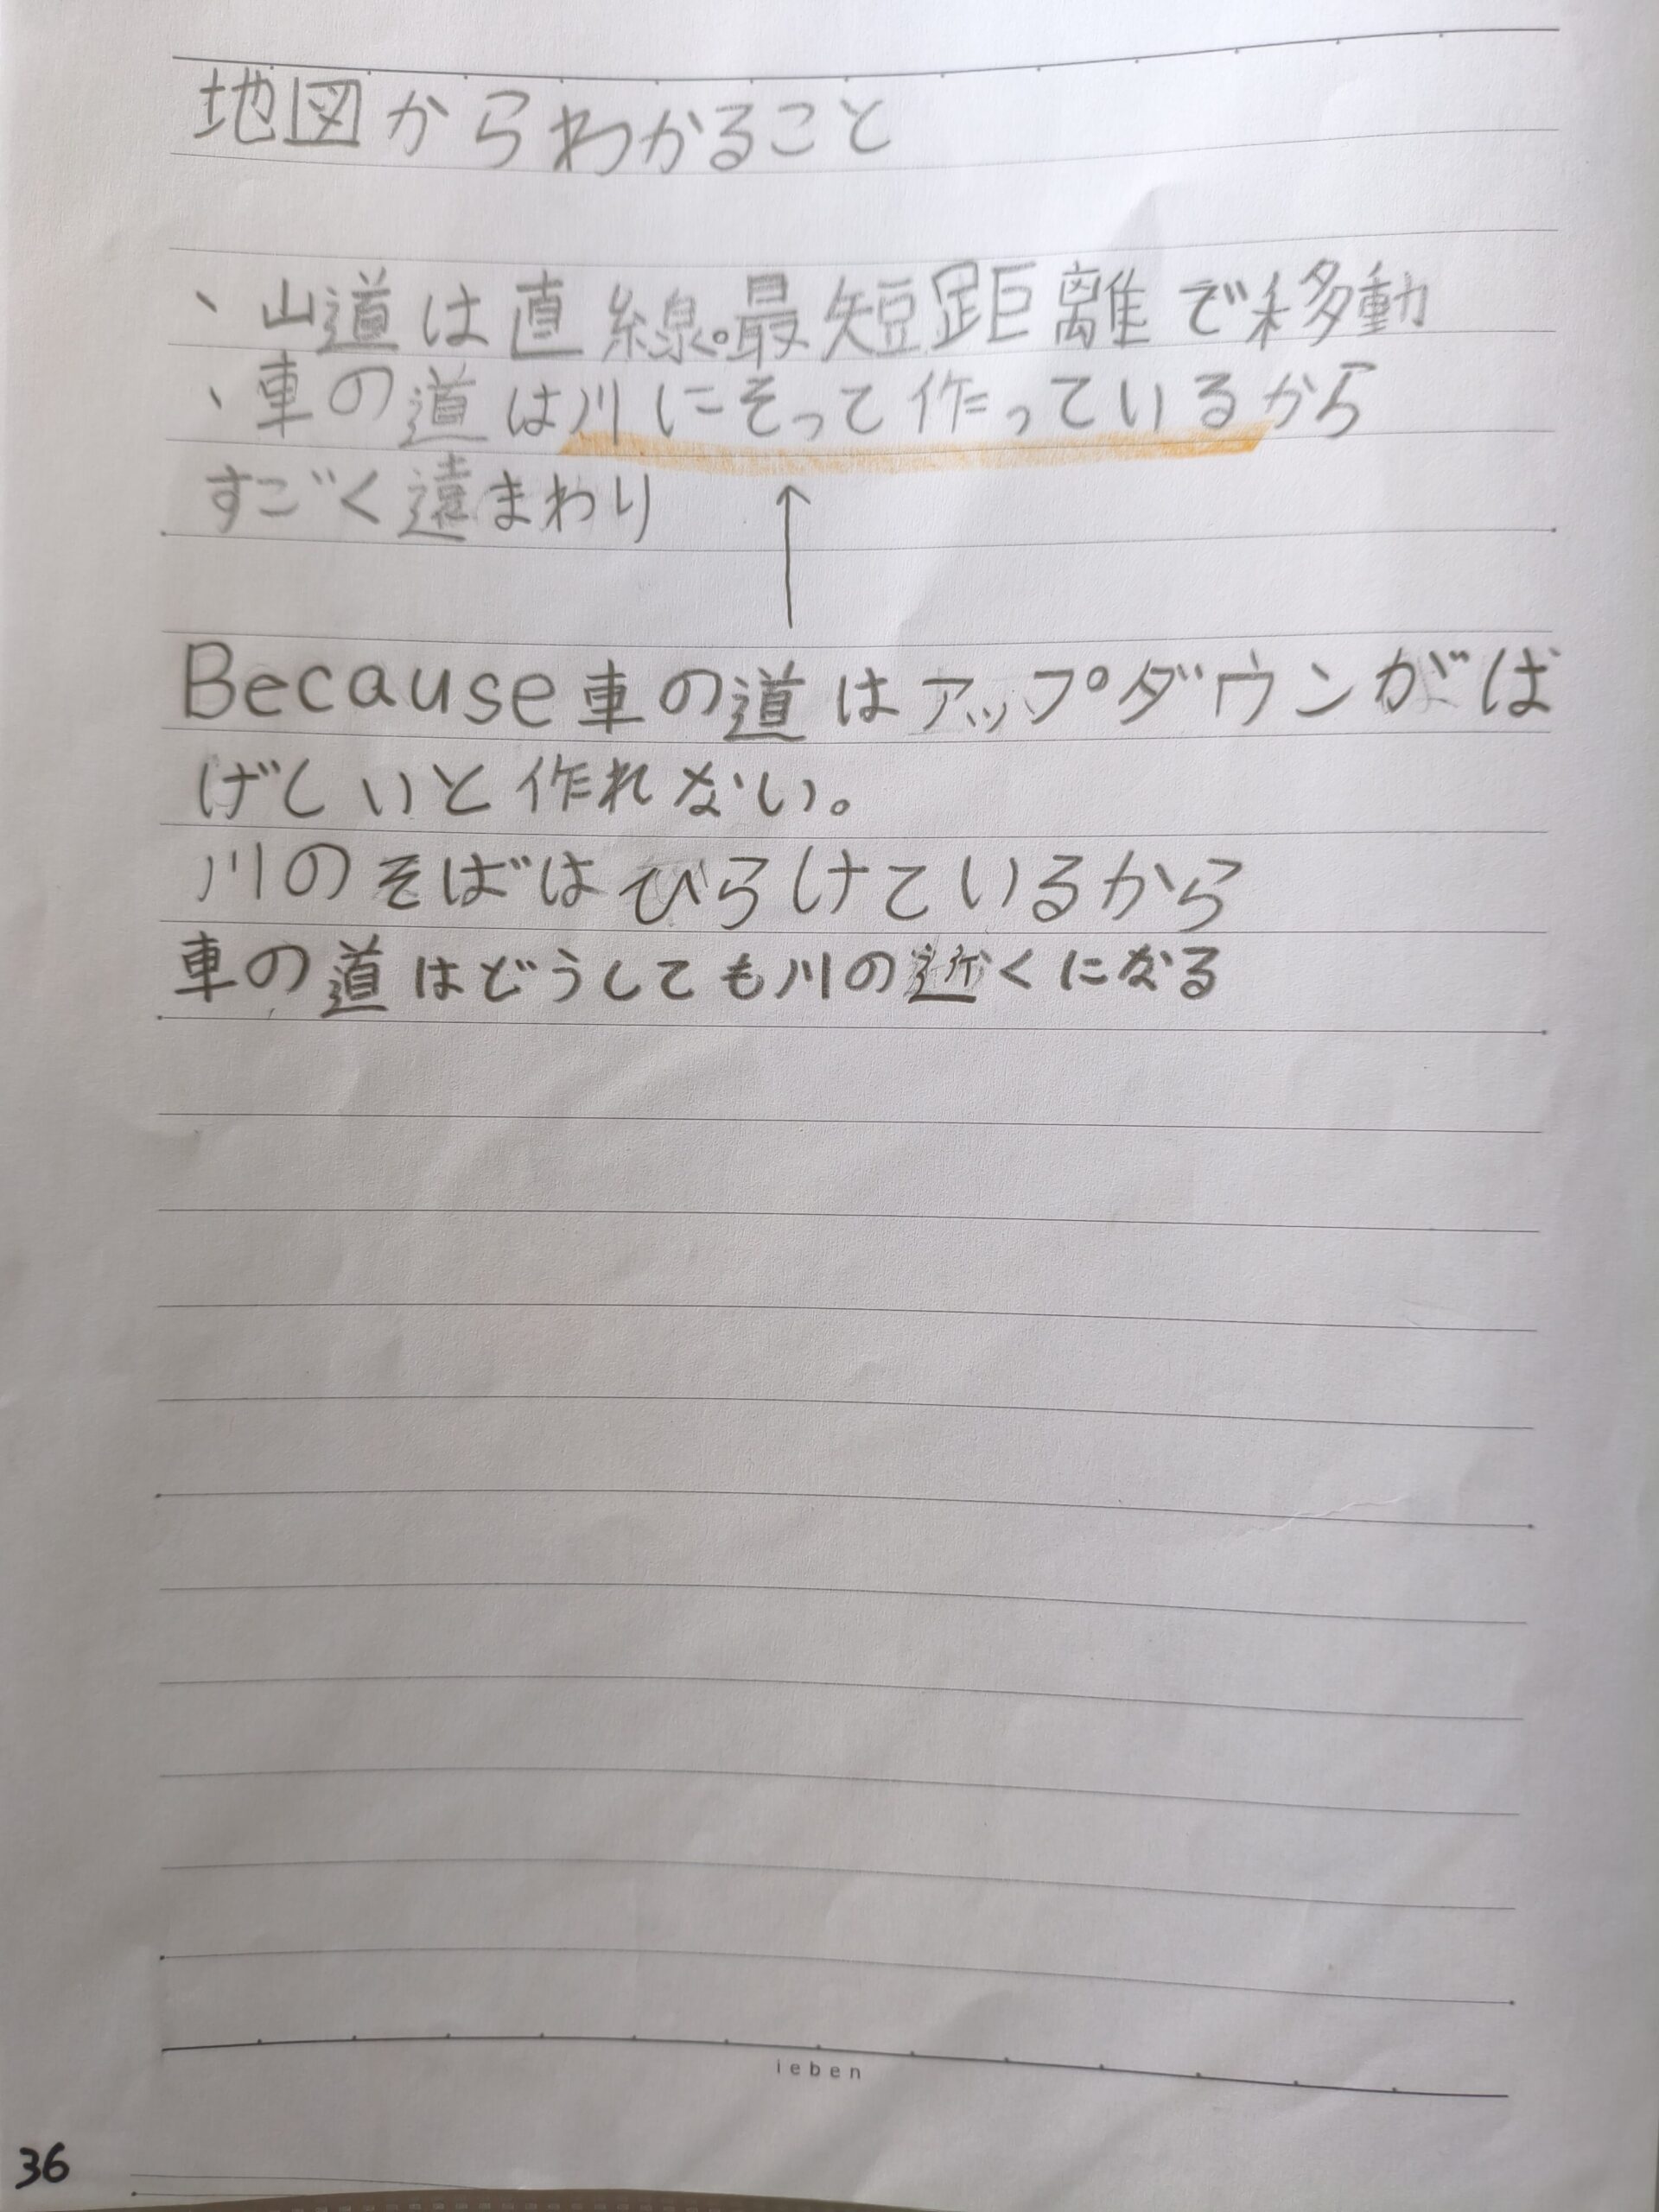 地図からわかること
、山道は直線。最短距離で移動
、車の道は川にそって作っているから
すごく遠まわり
↑
Because車の道はアップダウンがば
げしいと作れない。
川のそばはひらけているから
車の道はどうしても川の近くになる
leben
36